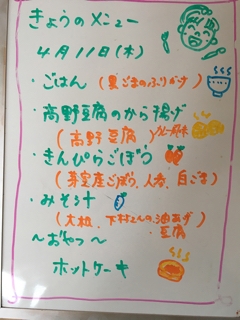 きょうのメニュー
4月11日(木)
・ごはん(黒ごまのふりかけ)
・高野豆腐のから揚げ
(高野豆腐)カレー風味
・きんぴらごぼう
(芽室産ごぼう、人参、白ごま)
・みそ汁
(大根、下村さんの油あげ
豆腐
～おやつ～
ホットケーキ